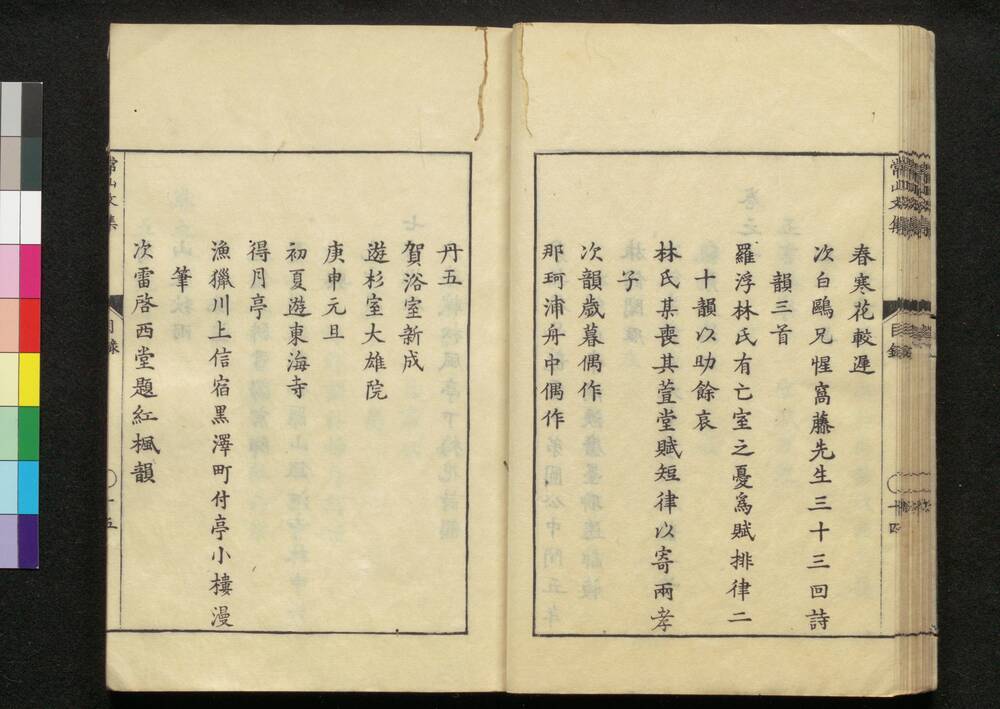 春寒花較遲
次白鷗兄惺窩藤先生三十三回詩
韻三首
羅浮林氏有亡室之憂爲賦排律二
十韻以助餘哀
林氏某喪其萱堂賦短律以寄兩孝
子
次韻歳暮偶作
那珂浦舟中偶作
丹五
賀浴室新成
遊杉室大雄院
庚申元旦
初夏遊東海寺
得月亭
漁獵川上信宿黒澤町付亭小樓漫
筆
次雷啓西堂題紅楓韻
常山文集
目錄
十四
常山文集
目錄
十五